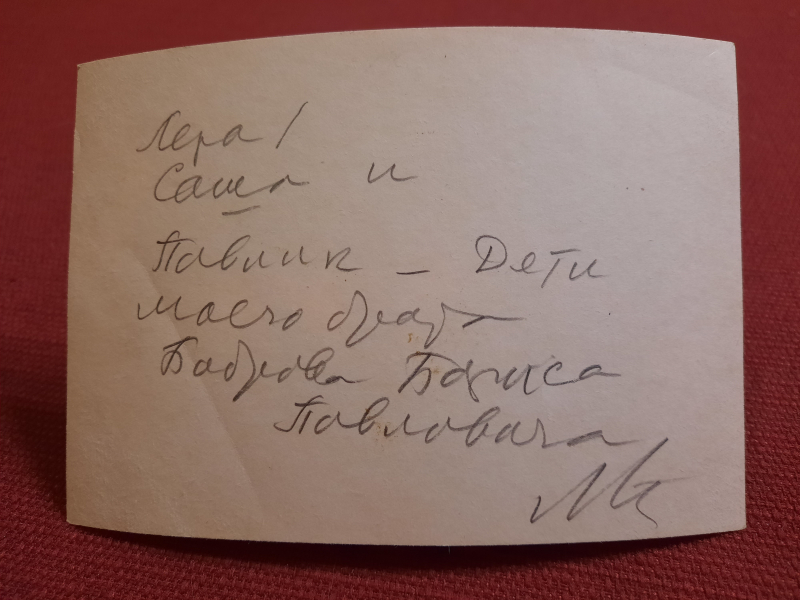 Лера!
Саша и
Павлик — Дети
моего брата
Боброва Бориса
Павловича